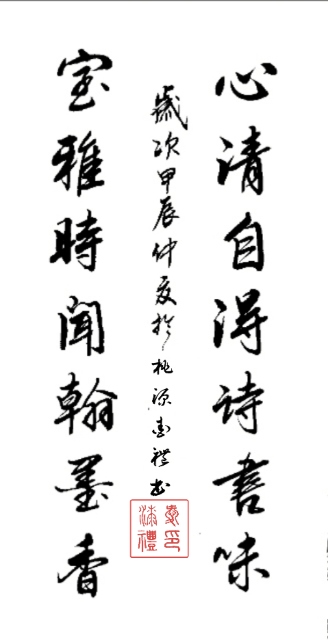 心清自得诗書味
室雅時聞翰墨香
歲次甲辰仲夏於桃源
書